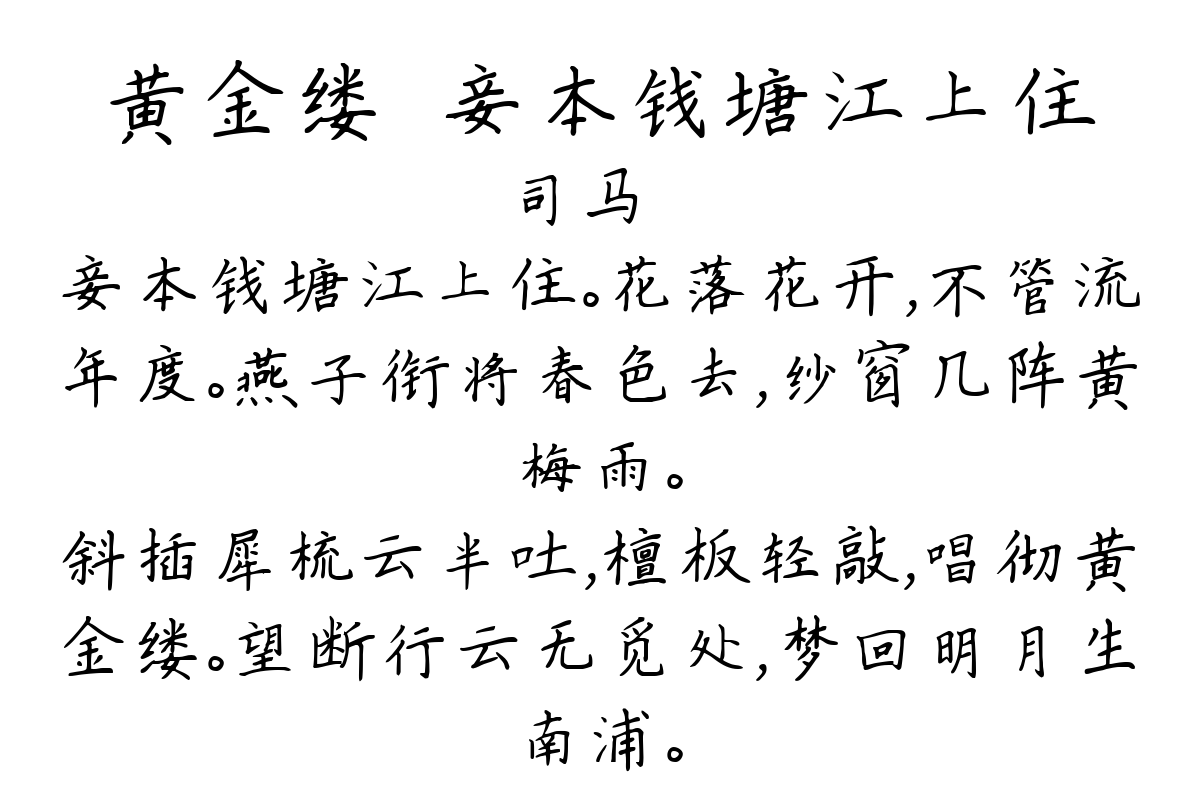 黄金缕 妾本钱塘江上住
司马
妾本钱塘江上住。花落花开,不管流
年度。燕子衔将春色去,纱窗几阵黄
梅雨。
斜插犀梳云半吐,檀板轻敲,唱彻黄
金缕。望断行云无觅处,梦回明月生
南浦。